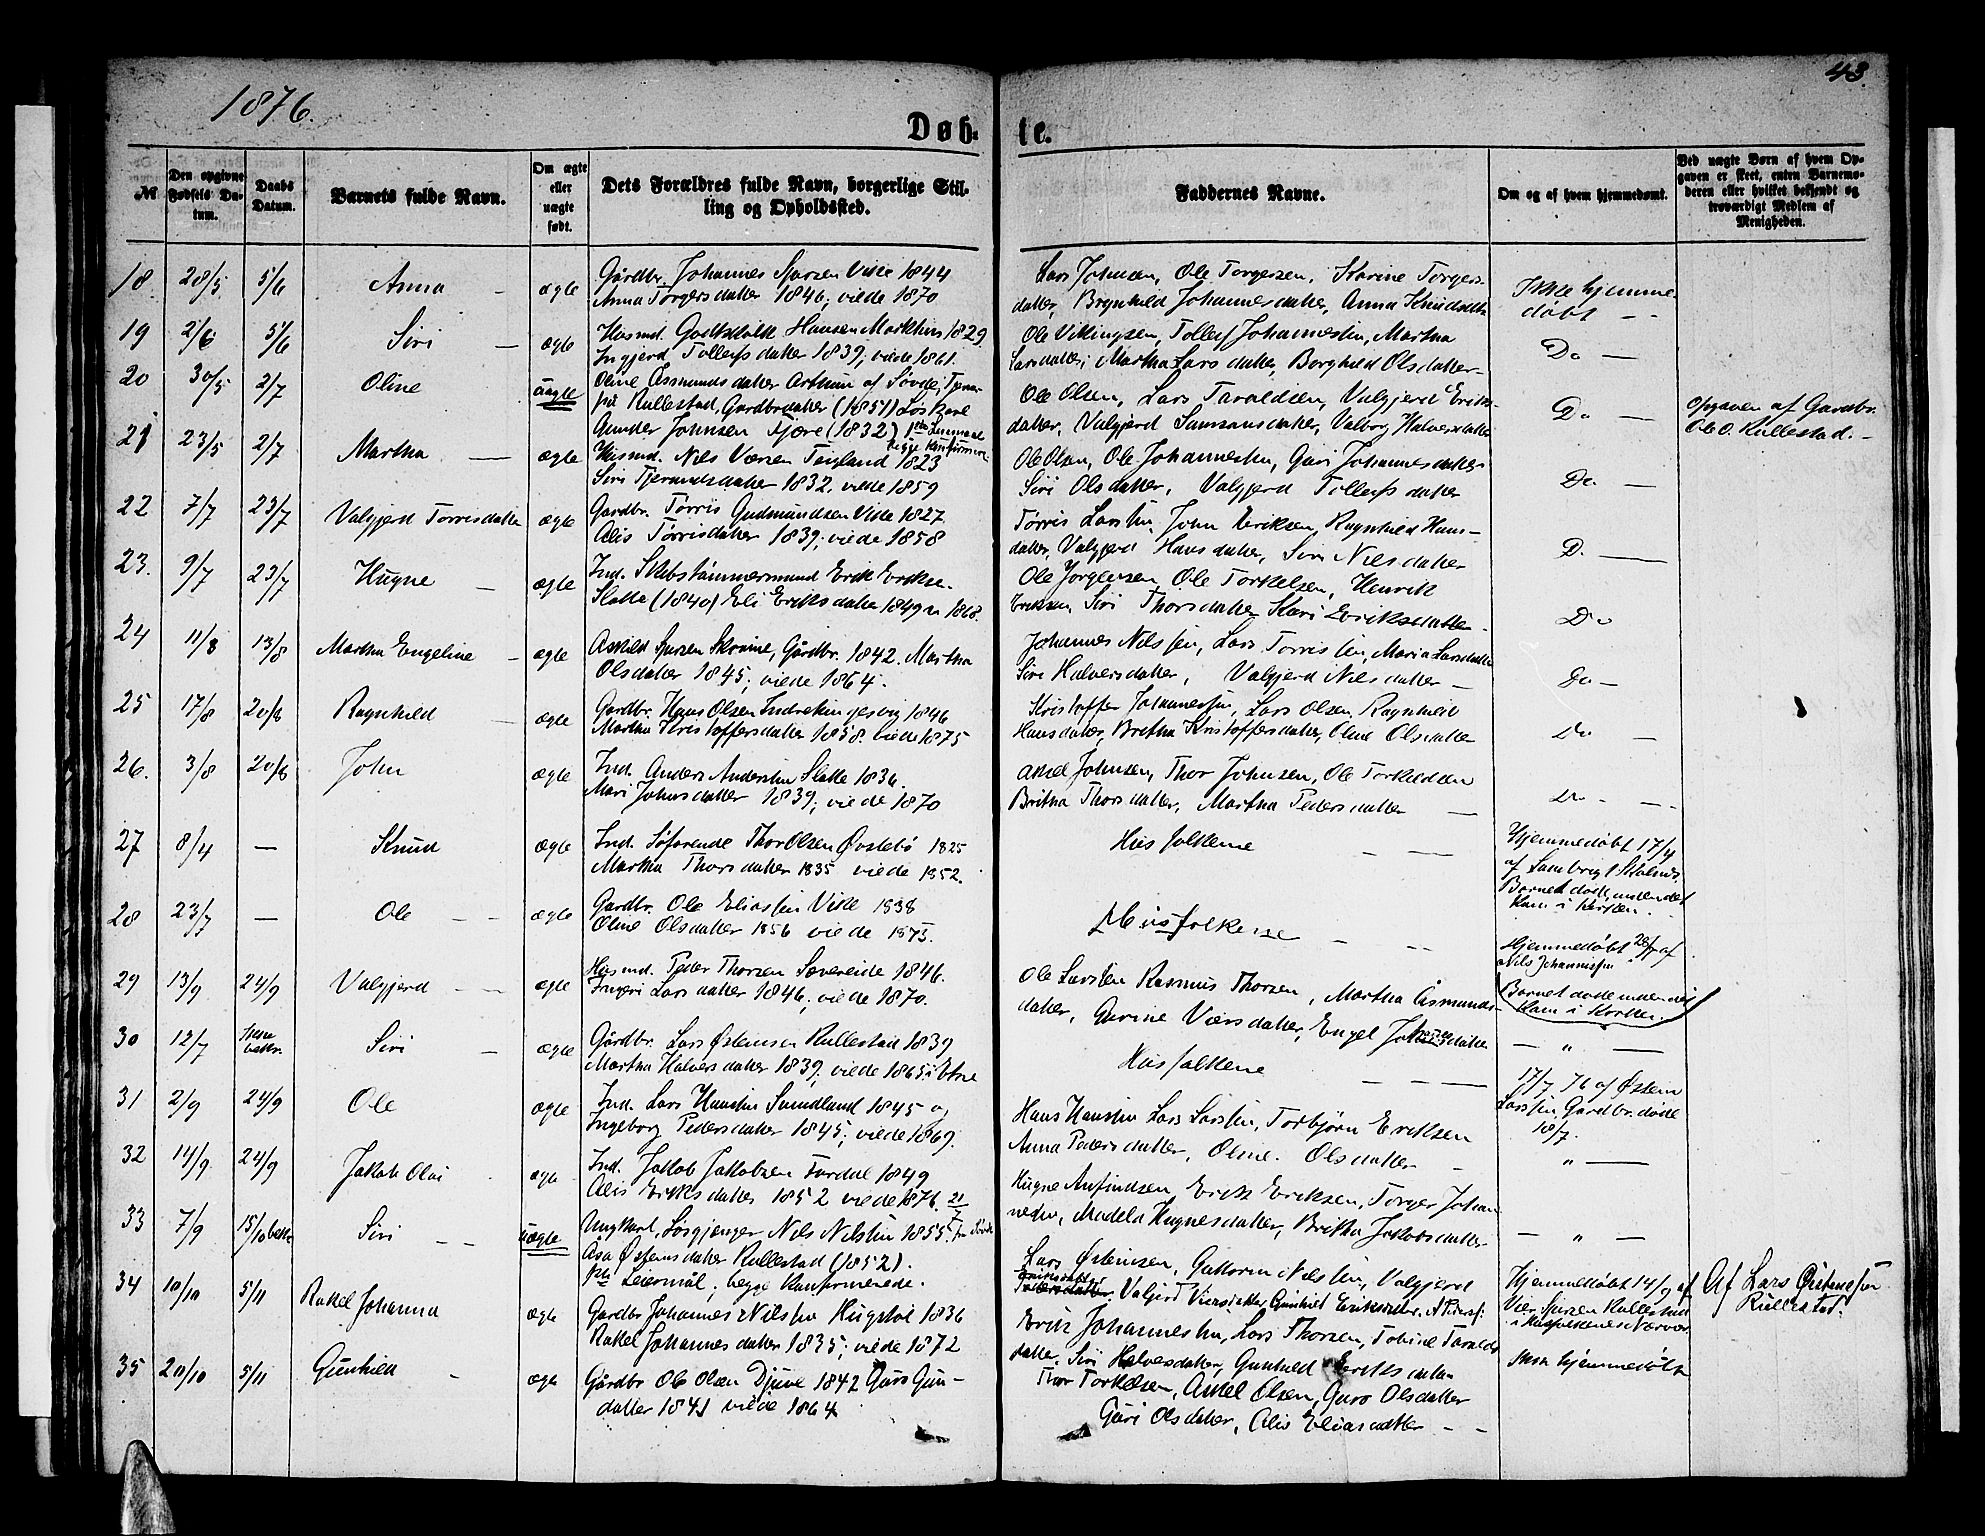 1876.
43.
Døb-
te.
№
Den opgivne Fødsels Datum.
Daabs Datum.
Barnets fulde Navn.
Om ægte eller uægte født.
Dets Forældres fulde Navn, borgerlige Stilling og Opholdssted.
Faddernes Navne.
Om og af hvem hjemmedøbt.
Ved uægte Børn af hvem Opgaven er skeet, enten Barnemoderen eller hvilket bekjendt og troværdigt Medlem af Menigheden.
18. 28/5 5/6 Anna — ægte
Gårdbr. Johannes Sjursen Vike 1844
Anna Torgersdatter 1846, viede 1870
Lars Johnsen, Ole Torgersen, Karine Torgers-
datter, Brynhild Johannesdatter, Anna Knudsdatter
Ikke hjemme-
døbt
19 2/6 5/6 Siri — ægte
Husmd. Hansen 1829
Ingjerd Tollefsdatter 1839, viede 1861.
Ole Vikingsen, Tollef Johannessen, Martha
Larsdatter, Martha Larsdatter, Borghild Olsdatter
Do —
20 30/5 2/7 Oline uægte
Oline Åsmundsdatter af Søvde, Tjen.
på Rullestad, Gardbrdatter (1851) Løskarl
Gunder Johnsen Fjære (1832) 1ste Leiermaal
begge Konfirmere
Ole Olsen, Lars Taraldsen, Valgjerd Eriks-
datter, Valgjerd Samsonsdatter, Valborg Halversdatter
Do —
Opgaven af Gardbr.
Ole O. Rullestad. —
21 23/5 2/7 Martha — ægte
Husmd. Nils Viersen Teigland 1823
Siri Tjerandsdatter 1832, viede 1859
Ole Olsen, Ole Johannessen, Guri Johannesdatter
Siri Olsdatter, Valgjerd Tollefsdatter
Do —
22 7/7 23/7 Valgjerd Torrisdatter ægte
Gardbr. Torris Gudmundsen Vike 1827
Alis Torrisdatter 1839, viede 1858
Torris Larssen, John Eriksen, Ragnhild Hans-
datter, Valgjerd Hansdatter, Siri Nilsdatter
D. —
23. 9/7 23/7 Hugne — ægte
Ind. Skibstømmermand Erik Eriksen
Slatte (1840) Eli Eriksdatter 1849 v 1868.
Ole Jorgensen, Ole Torkelsen, Henrik
Eriksen, Siri Thorsdatter Kari Eriksdatter
Do
24 11/8 13/8 Martha Engeline — ægte
Askild Sjursen Skromme, Gårdbr. 1842. Martha
Olsdatter 1845, viede 1864.
Johannes Nilssen, Lars Torrissen, Maria Larsdatter
Siri Halversdatter, Valgjerd Nilsdatter —
Do —
25 17/8 20/8 Ragnhild — ægte
Gardbr. Hans Olsen 1846
Martha Kristoffersdatter 1858. viede 1875
Kristoffer Johannessen, Lars Olsen, Ragnhild
Hansdatter, Britha Kristoffersdatter, Oline Olsdatter
Do —
26. 3/8 20/8 John ægte
Ind. Anders Anderssen Slatte 1836
Mari Johnsdatter 1839, viede 1870
Askel Johnsen, Thor Johnsen, Ole Torkildsen
Britha Thorsdatter, Martha Pedersdatter —
Do —
27 8/4 — Knud ægte
Ind. Søfarende Thor Olsen Østebø 1825
Martha Thorsdatter 1835 viede 1852.
Husfolkene
Hjemmedøbt 17/4
af
Barnet døde, inden det
kom i Kirken.
28 23/7 — Ole — ægte
Gardbr. Ole Eliassen Vike 1838
Oline Olsdatter 1856 viede 1873.
Husfolkene
Hjemmedøbt 28/7 af
Nils Johannissen
Barnet døde inden det
kom i Kirken.
29 13/9 24/9 Valgjerd — ægte
Husmd. Peder Thorsen Sævereide 1846.
Ingeri Larsdatter 1846, viede 1870.
Ole Larssen Rasmus Thorsen, Martha Åsmunds-
datter, Gurine Viersdatter, Engel Johannesdatter
— " —
30 12/7 Ikke bekr. Siri — ægte
Gårdbr. Lars Østensen Rullestad 1839
Martha Halversdatter 1839, viede 1865 i Etne
Husfolkene
17/7 76 af Østen
Larssen, Gardbr. døde
18/7.
31 2/9 24/9 Ole ægte
Ind. Lars Hanssen Sundland 1845 og
Ingeborg Pedersdatter 1845, viede 1869.
Hans Hanssen Lars Larssen, Torbjørn Eriksen
Anna Pedersdatter, Oline Olsdatter
" —
32 14/9 24/9 Jakob Olai ægte
Ind. Jakob Jakobsen Fardal 1849
Alis Eriksdatter 1852 viede 1876. 21/7
Hugne Anfindsen, Erik Eriksen, Torger Johan
nesen, Madela Hugnesdatter, Britha Jakobsdatter
— " —
33 7/9 15/10 bekr. Siri — uægte
Ungkarl, Løsgjenger Nils Nilssen 1855 fra
Åsa Østensdatter Rullestad (1852).
Leiermål, begge Konfirmerede.
Lars Østensen, Guttorm Nilssen, Valgjerd
Eriksdatter, Valgjerd Viersdatter, Gunhild Eriksdatter, A Peders.
Hjemmedøbt 14/9 af
Vier Sjursen Rullestad
i Husfolkenes Nærvær
Af Lars Østensen
Rullestad.
34 10/10 5/11 Rakel Johanna ægte
Gardbr Johannes Nilssen Hugstøl 1836
Rakel Johannesdatter 1835, viede 1872
Erik Johannessen, Lars Thorsen, Tobine Taralds
datter, Siri Halvesdatter, Gunhild Eriksdatter
Ikke hjemmedøbt
35 20/10 5/11 Gunhild ægte
Gårdbr Ole Olsen Djuve 1842 Guro Gun-
datter 1841 viede 1864
Thor Torkelsen, Askel Olsen, Guro Olsdatter
Guri Olsdatter, Alis Eliasdatter — —